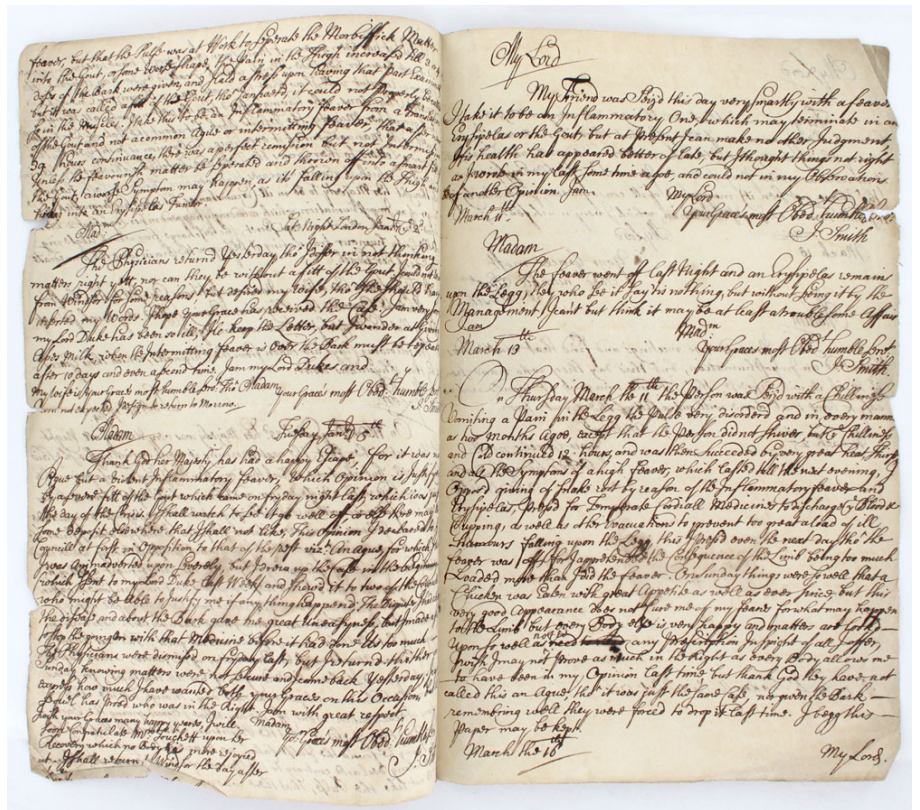 feaver, but that the Pulse was at Work to seperate the Morbiffick Matter
into the Gout, or some worse shape, the Pain in the Thigh increased till 3 or 4
doses of the Bark were given, and I laid a stress upon having that Part Exam
but it was called a fitt of the Gout, tho I answerd it could not properly be
in the Muscles. I take this to be an Inflammatory feaver from a translation
of the Gout and not a common Ague or intermitting feaver that after
39 hours continuance, there was a perfect remission but not Intermission
Unless the feavourish matter be seperated and thrown off
the Gout, a worse Symptom may happen, as its falling upon the Thigh and
into an Erysipelas
Mad^m at Night London Jan^ry 2^d
The Physicians return'd Yesterday tho' I differ in not thinking
matters right yett, nor can they be without a fitt of the Gout
from Windsor for some reasons but desired my wife, tho'
my Words. I hope your Grace has received the Case. I am very sorry
my Lord Duke has been so ill, I'le keep the Letter, but
Asses Milk, when the Intermitting feaver is over the Bark must be repeated
after 10 days and even a second time. I am my Lord Dukes and
My wife is your Graces most humble Serv^t Madam Your Graces most Obed^t humble
I am not expected to return to Morrow. J: Smith
Madam Tuesday Jan^ry 5^th
Thank God her Majesty has had a happy Escape, for it was no
Ague but a violent Inflammatory feaver, which Opinion is justify'd
by a severe fitt of the Gout which came on fryday night last, which was just
the day of the Crisis. I shall watch to see it go well off or else we may
some Deposit elsewhere that I shall not like. This Opinion I
Councill at first in Opposition to that of the rest viz: An Ague for which
I was Animadverted upon Severely, but I drew up the case in the beginning
which I sent to my Lord Duke last Week and shewed it to two of the
who might be able to justify me if any thing happend. The Dispute
the disease and about the Bark gave me great Uneasyness, but I made
to stop the going on with that Medicine before it had done Us too much
The Physicians were dismised on fryday last, but return'd thither
Sunday knowing matters were not Secure and came back Yesterday. I
express how much I have wanted both your Graces on this Occasion, but
Time has proved who was in the Right. I am with great respect
I wish your Graces many happy years I will Madam
Congratulate upon her Yo^r Grace's most Obed^t humble
Recovery which no Body is more rejoyced
at, I shall return to Windsor the day after
My Lord
My Friend was Seiz'd this day very smartly with a feaver
I take it to be an Inflammatory One, which may terminate in an
Erysipelas or the Gout, but at Present I can make no other Judgment,
this health has appeared better of late, but I thought things not right
as I wrote in my last some time agoe, and could not in my Observations
be of another Opinion. I am My Lord
March 11^th Your Graces most Obed^t humble Serv^t
J: Smith
Madam
The feaver went off last Night and an Erysipelas remains
upon the Legg, they who see it say tis nothing, but without seeing it by the
Management I cant but think it may be at least a troublesome Affair
I am Mad^m
March 13^th Your Graces most Obed^t humble Serv^t
J: Smith.
On Thursday March the 11^th the Person was Seiz'd with a Chilliness
Vomiting a Pain in the Legg the Pulse very disorderd and in every manner
as two Months Agoe, except that the Person did not Shiver, but the Chilliness
and Cold continued 12 hours, and was then succeeded by very great heat, thirst
and all the Symptoms of a high feaver, which lasted till the next evening,
Instead giving of Flake Rest by reason of the Inflammatory feaver and
Erysipelas I press'd for Temperate Cordiall Medicines to discharge by Blood &
Cupping, as well as other Evacuations to prevent too great a load of ill
Humours falling upon the Legg, this I press'd even the next day tho' the
feaver was off for I apprehended the Consequence of the Limb being too much
Loaded more than I did the feaver. On Sunday things were so well that a
Chicken was Eaten with great Appetite as well as ever since, but this
very good Appearance does not cure me of my fears for what may happen
to the Limb, but every Body else is very happy and matters are Look'd
upon so well as not to need any Prescription In spight of all I offer,
I wish I may not prove as much in the Right as every Body allows me
to have been in my Opinion last time but thank God they have not
called this an Ague, tho' it was just the same case, nor given the Bark —
remembring well they were forced to drop it last time. I begg this —
Paper may be kept.
March the 16^th My Lord.